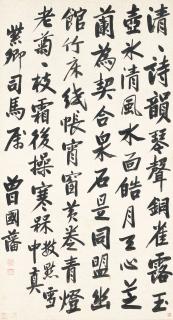 清〻詩韻琴聲銅雀露玉
壺冰清風水面皓月天心芝
蘭為契合泉石是同盟幽
館竹床紙帳宵窗黃卷青燈
老菊〻枝霜後操寒槑數點雪
中真
紫卿司馬屬
曾國藩